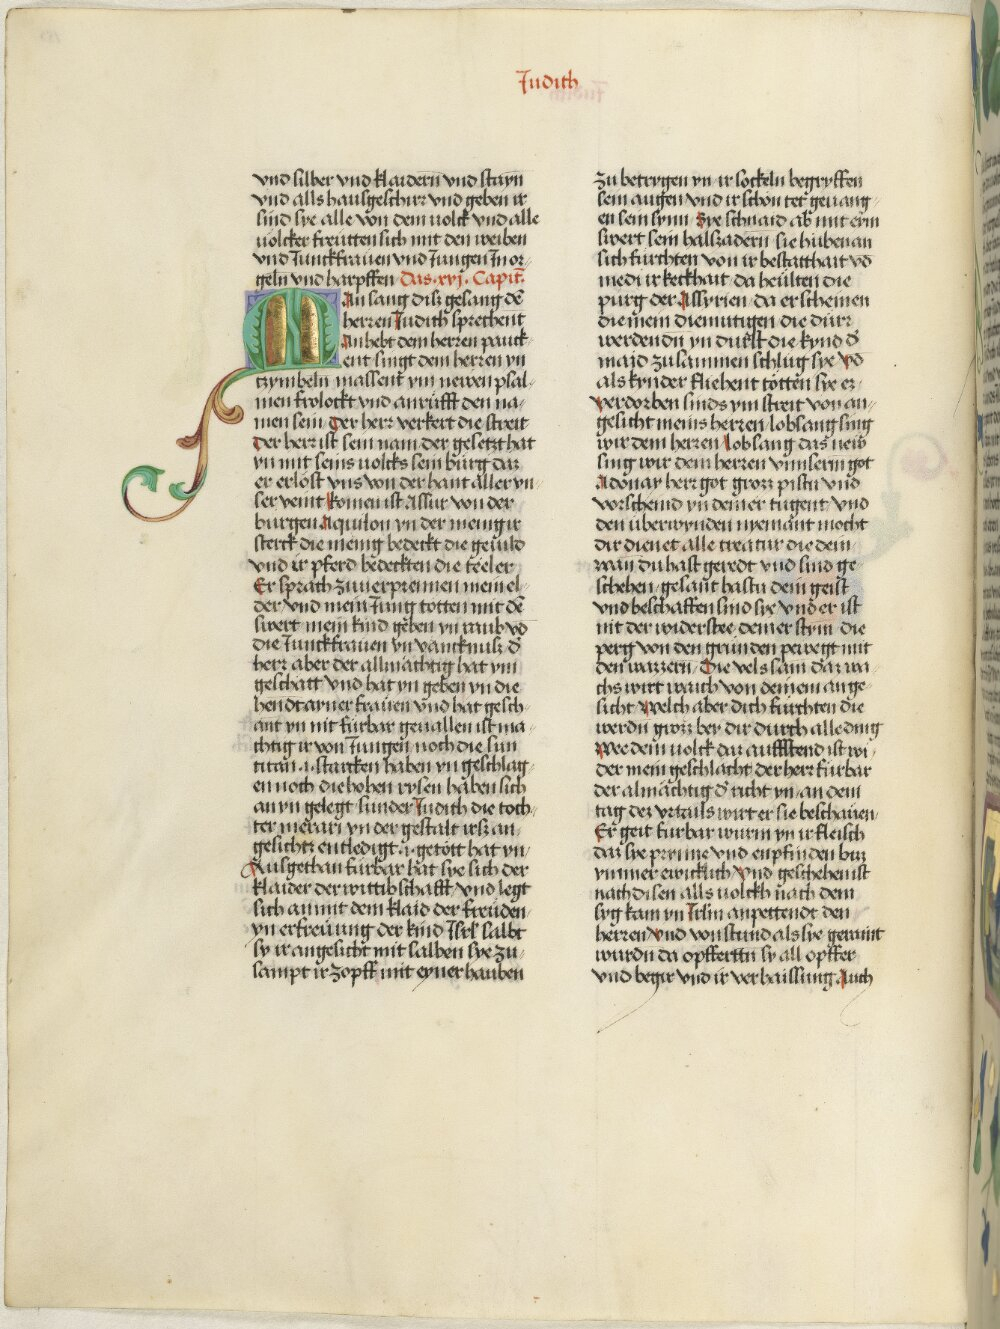 Judith
vnd silber vnd klaidern vnd stayn
vnd alls hausgeschirr vnd geben ir
sind sye alle von dem uolck vnd alle
uolcker freutten sich mit den weiben
vnd Junckfrauen vnd Jungen Jn or-
geln vnd harpffen Das .xvj. Capit̃.
An sang disz gesang dē
herren Judith sprechent
An hebt dem herren pauck-
ent singt dem herren yn
czymbeln massent ym newen psal-
men frolockt vnd anrufft den na-
men sein Der herr verkert die streit
Der herr ist sein nam der gesetzt hat
yn mit seins uolcks sein burg daz
er erlost vns von der hant aller vn-
ser veint komen ist Assur von der
burgen Aquilon yn der menig ir
sterck die menig bedeckt die geuild
vnd ir pferd bedeckten die teeler
Er sprach zuuerprennen mein el-
der vnd mein Jung totten mit dē
swert mein kind geben yn raub vō
die Junckfrauen yn vancknusz ḋ
herr aber der allmachtig hat ym
geschatt vnd hat yn geben yn die
hendt ayner frauen vnd hat gesch-
ant yn nit furbar geuallen ist ma-
chtig ir von Jungen noch die sun
titan .i. starcken haben yn geschlag-
en noch die hohen rysen haben sich
an yn gelegt sunder Judith die toch-
ter merari yn der gestalt irsz an-
gesichtz entledigt .i. getött hat yn
Ausgethan furbar hat sye sich der
klaider der wittibschafft vnd legt
sich an mit dem klaid der freuden
yn erfreuung der kind Isrl̃ salbt
sy ir angesicht mit salben sye zu-
sampt ir zopff mit eyner hauben
zu betrygen yn ir sockeln begryffen
sein augen vnd ir schon tet geuang-
en sein synn Sye schnaid ab mit eim
swert sein halszadern sie huben an
sich furchten von ir bestatthait vō
medi ir keckhait da heulten die
purg der Assyrien da erscheinen
die mein diemutigen die durr
werden vn durst die kynd ḋ
maid zusammen schlug sye vō
als kynder fliehent totten sye er-
verdorben sinds ym streit von an-
gesicht meins herren lobsang sing
wir dem herren lobsang das new
sing wir dem herren vnnserm got
Adonay herr got grozz pistu vnd
vorscheind yn deiner tugent vnd
den uberwynden nyemant mocht
dir dienet alle creatur die dein
wan du hast geredt vnd sind ge-
schehen gesant hastu dein geist
vnd beschaffen sind sye vnd er ist
nit der widerstee deiner stym die
perg von den grunden pewegt mit
den wazzern Die vels sam daz wa-
chs wirt waich von deinem ange-
sicht Welch aber dich furchten die
werdn grozz bey dir durch alle ding
Wee dem uolck daz aufstend ist wi-
der mein geschlacht der herr furbar
der almachtig ḋ richt yn an dem
tag dez vrtails wirt er sie beschauen
Er geit furbar wurm yn ir fleisch
daz sye prynne vnd enpfinden biz
ymmer ewicklich Vnd geschehen ist
nach disen alls uolckh nach dem
syg kam yn Jrlm̃ anpettendt den
herren vnd von stund als sye geraint
wurdn da opfferttn sy all opffer
vnd begir vnd ir verhaissung Auch